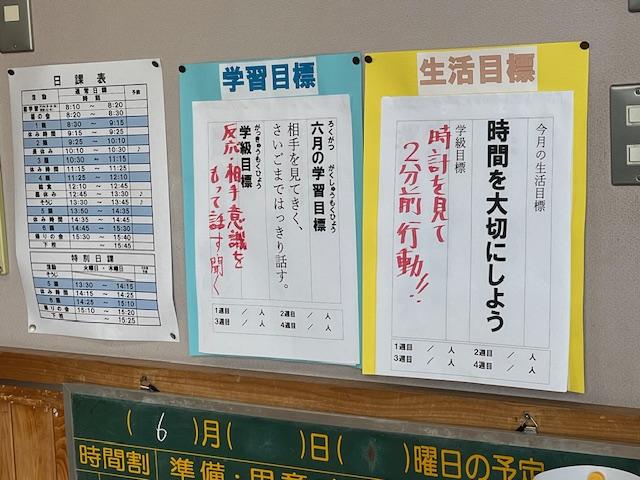 日課表
活動 通常日課 時刻 予鈴
8:10 ～ 8:20
朝の会 8:20 ～ 8:30
1校時 8:30 ～ 9:15
休み時間 9:15 ～ 9:25
9:25 ～ 10:10
10:10 ～ 10:30 ♪
10:30 ～ 11:15
休み時間 11:15 ～ 11:25
11:25 ～ 12:10
給食 12:10 ～ 12:45
昼休み 12:45 ～ 13:30 ♪
そうじ 13:30 ～ 13:45 ♪
13:50 ～ 14:35
休み時間 14:35 ～ 14:45
14:45 ～ 15:30
帰りの会 15:30 ～ 15:40
下校 ～ 15:45
特別日課
活動 火曜日・木曜日
そうじ
13:30 ～ 14:15
休み時間 14:15 ～ 14:25
14:25 ～ 15:10
帰りの会 15:10 ～ 15:20
下校 ～ 15:25
学習目標
ろくがつ がくしゅうもくひょう
六月の学習目標
相手を見てきく、
さいごまではっきり話す。
がっきゅうもくひょう
学級目標
反応・相手意識を
もって話す聞く
1週目 / 人 2週目 / 人
3週目 / 人 4週目 / 人
生活目標
今月の生活目標
時間を大切にしよう
学級目標
時計を見て
2分前行動!!
1週目 / 人 2週目 / 人
3週目 / 人 4週目 / 人
( 6 )月( )日( )曜日の予定
時間割 準備・用意